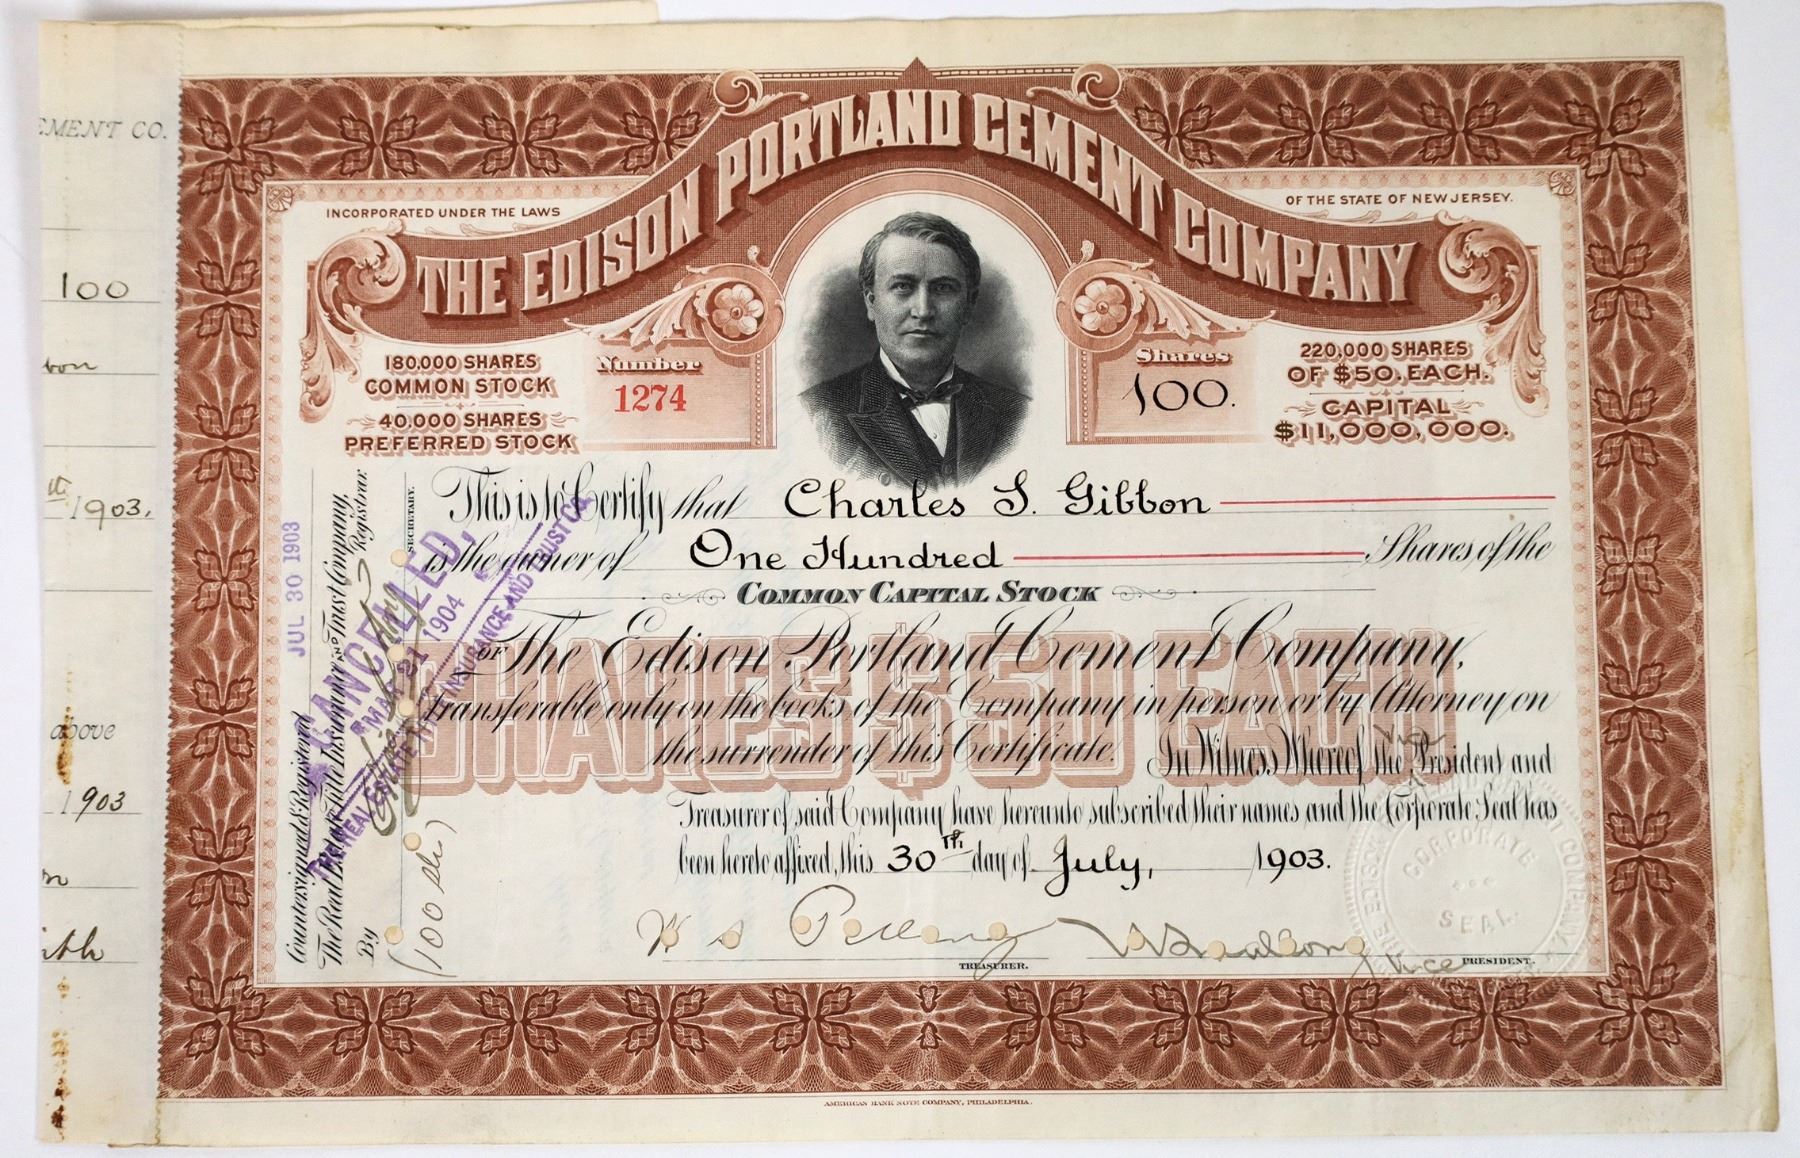 EMENT CO.
100
bon
th 1903.
above
1903
THE EDISON PORTLAND CEMENT COMPANY
INCORPORATED UNDER THE LAWS
OF THE STATE OF NEW JERSEY.
180,000 SHARES
COMMON STOCK
40,000 SHARES
PREFERRED STOCK
Number
1274
Shares
100.
220,000 SHARES
OF $50. EACH.
CAPITAL
$11,000,000.
This is to Certify that Charles S. Gibbon
is the owner of One Hundred Shares of the
COMMON CAPITAL STOCK
OF The Edison Portland Cement Company,
SHARES $50 EACH
Transferable only on the books of the Company in person or by Attorney on
the surrender of this Certificate. In Witness Whereof the Vice President and
Treasurer of said Company have hereunto subscribed their names and the Corporate Seal has
been hereto affixed, this 30TH. day of July, 1903.
TREASURER.
Vice PRESIDENT.
CORPORATE
SEAL
JUL 30 1903
Countersigned & Registered
The Real Estate Title Insurance and Trust Company,
Registrar.
By
SECRETARY.
(100 shs)
CANCELLED,
MAR 21 1904
THE REAL ESTATE TITLE INSURANCE AND TRUST CO.
AMERICAN BANK NOTE COMPANY, PHILADELPHIA.